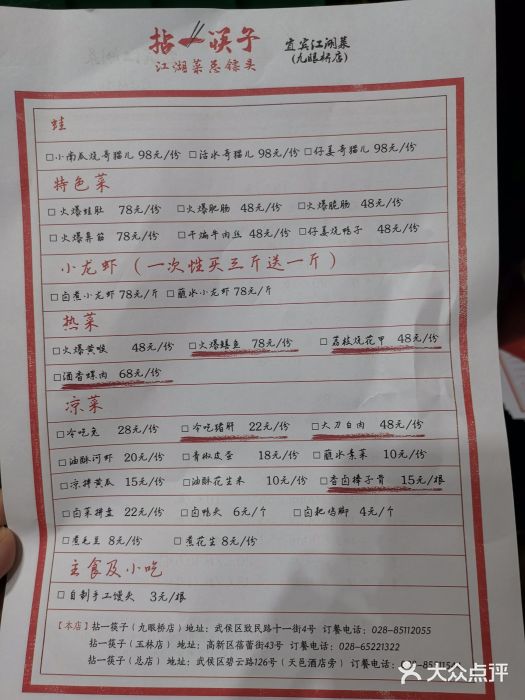 拈一筷子
江湖菜总馆头
宜宾江湖菜
(九眼桥店)
蛙
□小南瓜烧哥猫儿 98元/份 □活水哥猫儿 98元/份 □仔姜哥猫儿 98元/份
特色菜
□火爆蛙肚 78元/份 □火爆肥肠 48元/份 □火爆脆肠 48元/份
□火爆鼻筋 78元/份 □干煸牛肉丝 48元/份 □仔姜烧鸭子 48元/份
小龙虾（一次性买三斤送一斤）
□卤煮小龙虾 78元/斤 □蘸水小龙虾 78元/斤
热菜
□火爆黄喉 48元/份 □火爆鳝鱼 78元/份 □荔枝烧花甲 48元/份
□酒香螺肉 68元/份
凉菜
□冷吃兔 28元/份 □冷吃猪肝 22元/份 □大刀白肉 48元/份
□油酥河虾 20元/份 □青椒皮蛋 18元/份 □蘸水素菜 10元/份
□凉拌黄瓜 15元/份 □油酥花生米 10元/份 □香卤棒子骨 15元/根
□卤菜拼盘 22元/份 □卤鸭头 6元/个 □卤粑鸡脚 4元/个
□煮毛豆 8元/份 □煮花生 8元/份
主食及小吃
□自制手工馒头 3元/根
【本店】拈一筷子（九眼桥店）地址：武侯区致民路十一街4号 订餐电话：028-85112055
拈一筷子（玉林店）地址：高新区蓓蕾街43号 订餐电话：028-65221322
拈一筷子（总店）地址：武侯区碧云路126号（天邑酒店旁）订餐电话：
大众点评